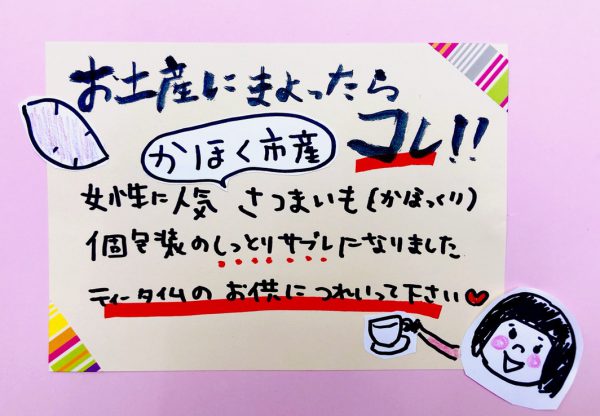 お土産にまよったら
コレ!!
かほく市産
女性に人気 さつまいも(かほっくり)
個包装のしっとりサブレになりました
ティータイムの お供に つれいって下さい♥